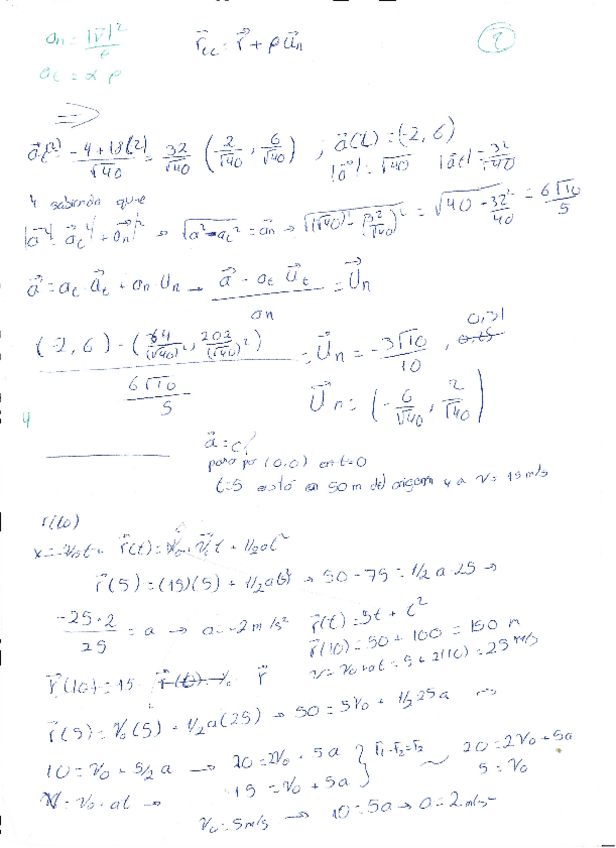 an = |v⃗|²/ρ
r⃗cc = r⃗ + ρ u⃗n
2
at = α ρ
⇒
a⃗t(2) = -4+18(2)/√40 = 32/√40 (2/√40, 6/√40) ; a⃗(2) = (-2, 6)
|a⃗| = √40 |a⃗t| = 32/√40
y sabiendo que
|a⃗|² = a⃗t² + a⃗n|² → √a²-at² = a⃗n → √(√40)² - (32/√40)² = √40 - 32²/40 = 6√10/5
a⃗ = at u⃗t + an un → a⃗ - at u⃗t / an = u⃗n
(-2, 6) - (64/(√40)², 202/(√40)²) / 6√10/5 = u⃗n = -3√10/10, 0,31
u⃗n = (-6/√40, 2/√40)
4
a⃗ = c?
pasa por (0,0) en t=0
t=5 está en 50 m del origen y a v = 15 m/s
r⃗(t) = v⃗o t + 1/2 at²
r⃗(5) = (15)(5) + 1/2 a(5)² → 50 - 75 = 1/2 a 25 →
-25·2/25 = a → a = -2 m/s² r⃗(t) = 5t + t²
r⃗(10) = 50 + 100 = 150 m
v = vo + at = 5 + 2(10) = 25 m/s
r⃗(10) = 15 r⃗
r⃗(5) = v⃗o(5) + 1/2 a(25) → 50 = 5vo + 1/2 25a →
10 = vo + 5/2 a → 20 = 2vo + 5a 20 = 2vo + 5a
v = vo + at → 15 = vo + 5a 5 = vo
vo = 5 m/s → 10 = 5a → a = 2 m/s²